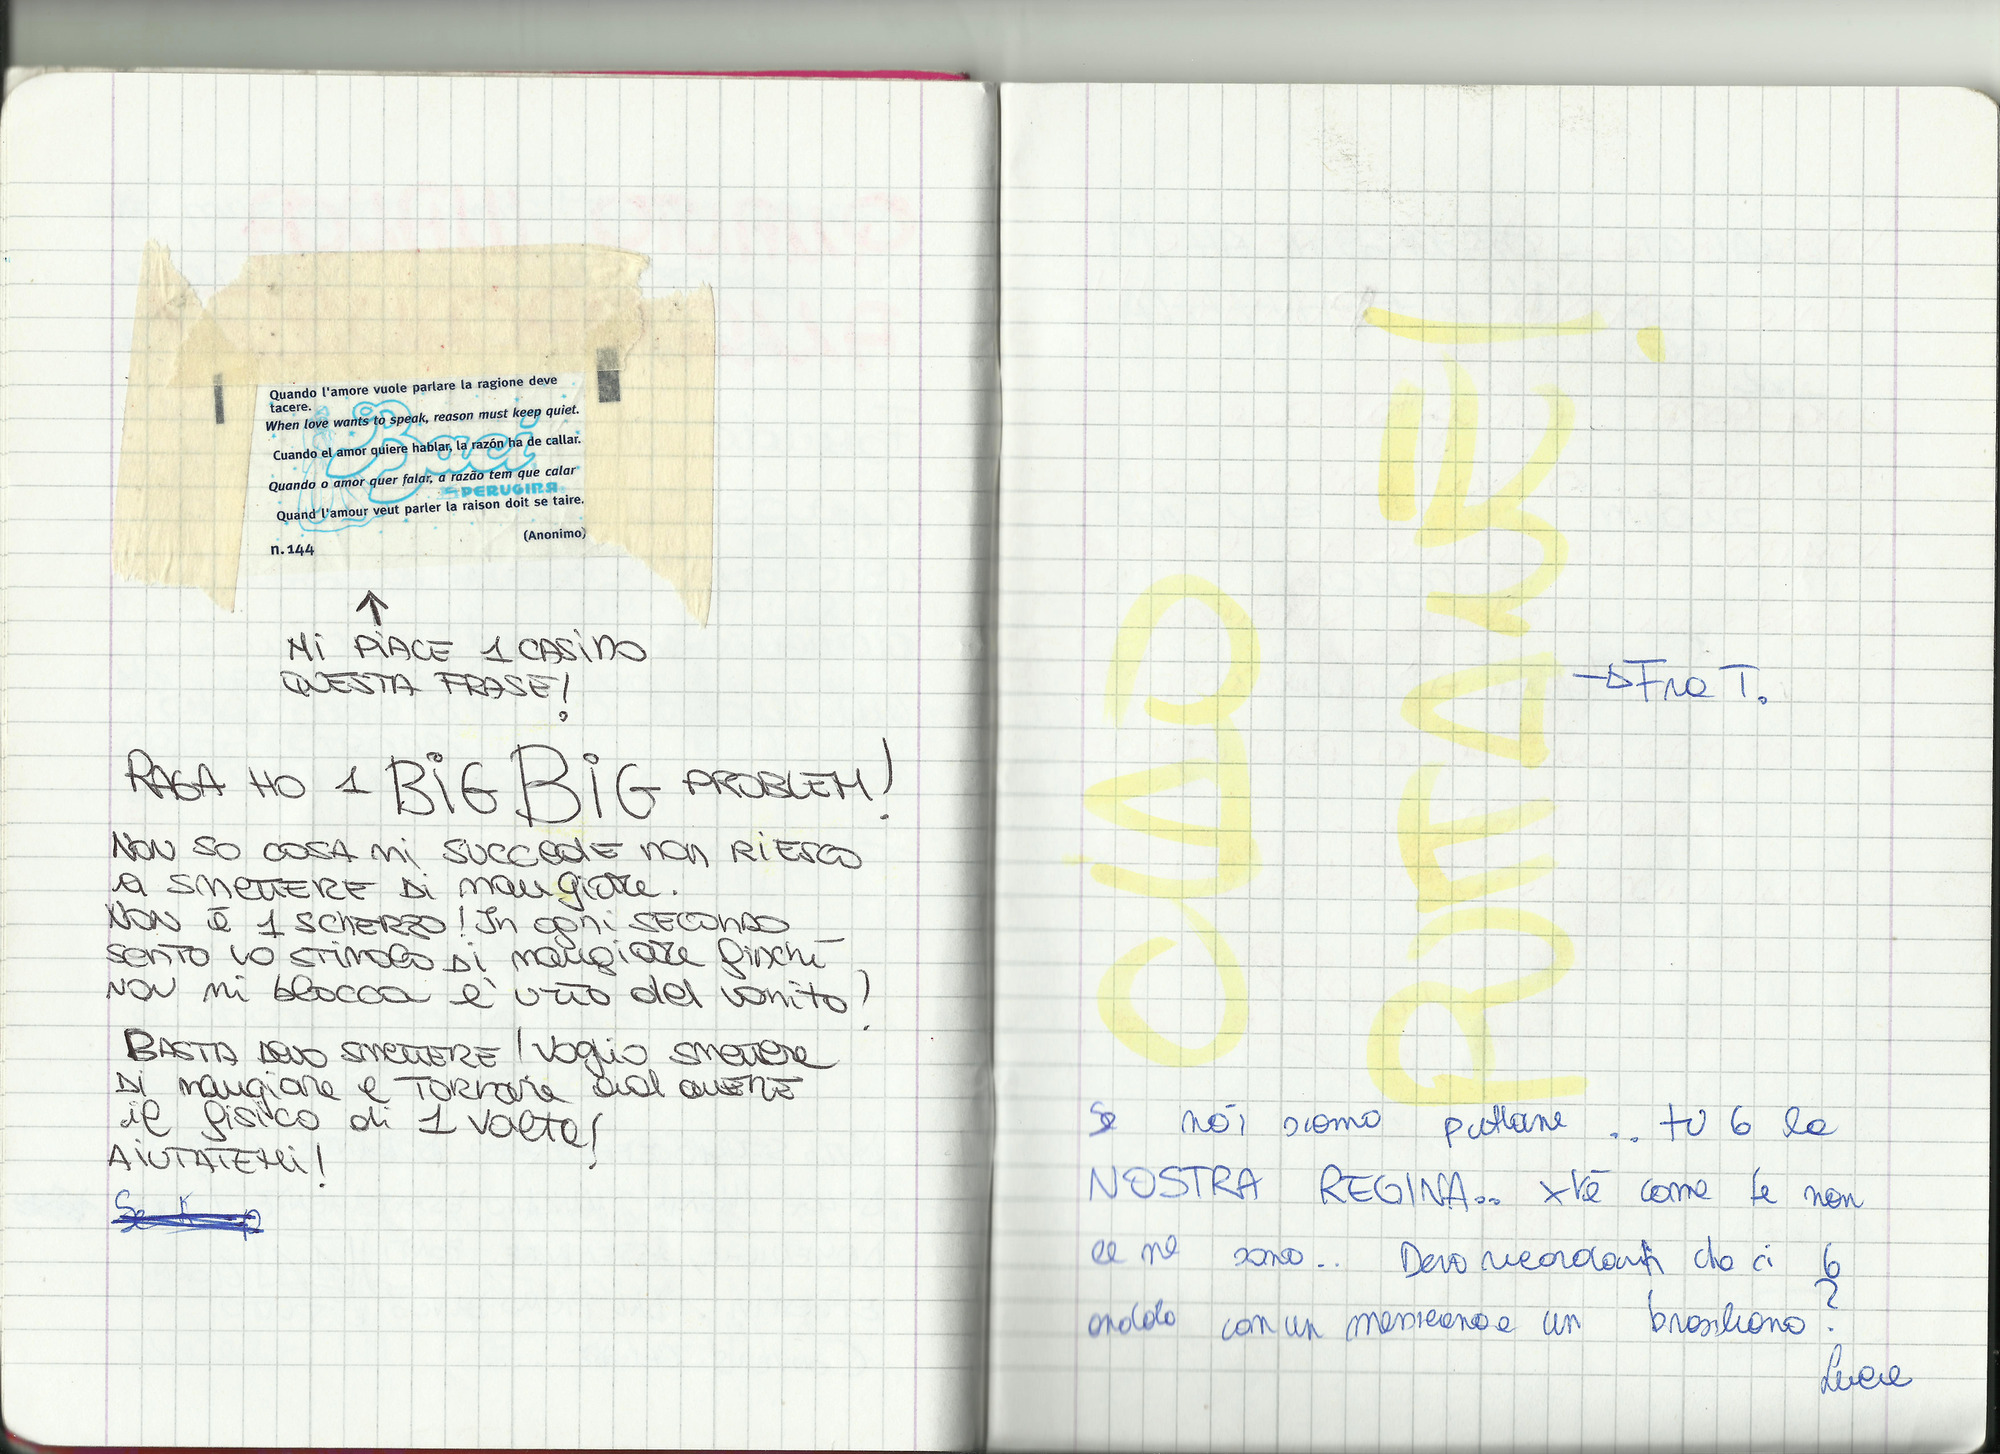 Quando l'amore vuole parlare la ragione deve
tacere.
When love wants to speak, reason must keep quiet.
Cuando el amor quiere hablar, la razón ha de callar.
Quando o amor quer falar, a razão tem que calar
Quand l'amour veut parler la raison doit se taire.
(Anonimo)
n.144
Baci
PERUGINA
↑
MI PIACE 1 CASINO
QUESTA FRASE!
RAGA HO 1 BIG BIG PROBLEM!
NON SO COSA MI SUCCEDE NON RIESCO
A SMETTERE DI MANGIARE.
NON È 1 SCHERZO! In ogni SECONDO
SENTO LO STIMOLO DI mangiare finchè
NON mi blocca l'urto del vomito!
BASTA DEVO SMETTERE! Voglio smettere
DI mangiare e TORNARE ad avere
il fisico di 1 volta!
AIUTATEMI!
CIAO
PUTTANE!
→ Fra T.
Se noi siamo puttane .. tu 6 la
NOSTRA REGINA.. xkè come te non
ce ne sono.. Devo ricordarti che ci 6
andata con un messicano e un brasiliano?